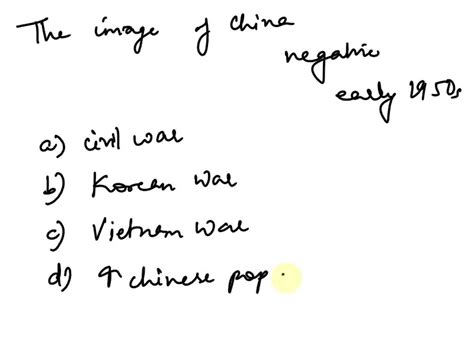 The image of china
negative
early 1950s
a) civil war
b) Korean war
c) Vietnam war
d) ↑ chinese pop.